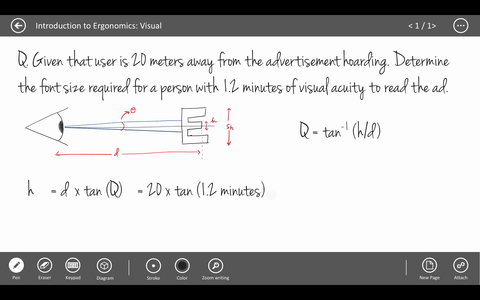 Introduction to Ergonomics: Visual
< 1 / 1>
Q. Given that user is 20 meters away from the advertisement hoarding. Determine
the font size required for a person with 1.2 minutes of visual acuity to read the ad.
θ
h
5h
d
Q = tan⁻¹ (h/d)
h = d x tan (Q) = 20 x tan (1.2 minutes)
Pen Eraser Keypad Diagram Stroke Color Zoom writing New Page Attach